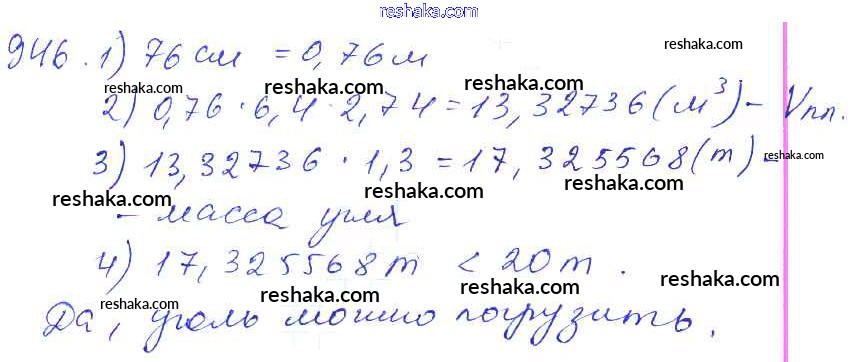 reshaka.com
946. 1) 76 см = 0,76 м
reshaka.com
reshaka.com
reshaka.com
2) 0,76 · 6,4 · 2,74 = 13,32736 (м³) - Vпп.
reshaka.com
reshaka.com
3) 13,32736 · 1,3 = 17,325568 (т) -
reshaka.com
reshaka.com
reshaka.com
- масса угля
reshaka.com
reshaka.com
4) 17,325568 т < 20 т.
reshaka.com
reshaka.com
reshaka.com
Да, уголь можно погрузить.
reshaka.com
reshaka.com